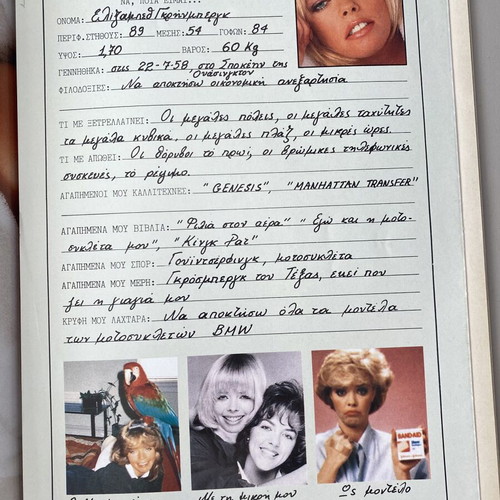 ΝΑ, ΠΟΙΑ ΕΙΜΑΙ...
ΟΝΟΜΑ: Ελιζαμπεθ Γκρήνμπεργκ
ΠΕΡΙΦ.ΣΤΗΘΟΥΣ: 89 ΜΕΣΗΣ: 54 ΓΟΦΩΝ: 84
ΥΨΟΣ: 1,70 ΒΑΡΟΣ: 60 Kg
ΓΕΝΝΗΘΗΚΑ: στις 22-7-58 στο Σποκέην της
Ουάσιγκτον
ΦΙΛΟΔΟΞΙΕΣ: Να αποκτήσω οικονομική ανεξαρτησία
ΤΙ ΜΕ ΞΕΤΡΕΛΛΑΙΝΕΙ: Οι μεγάλες πόλεις, οι μεγάλες ταχύτητες
τα μεγάλα κυβικά, οι μεγάλες πλάζ, οι μικρές ώρες.
ΤΙ ΜΕ ΑΠΩΘΕΙ: Οι θόρυβοι το πρωί, οι βρώμικες τηλεφωνικές
συσκευές, το ρέψιμο.
ΑΓΑΠΗΜΕΝΟΙ ΜΟΥ ΚΑΛΛΙΤΕΧΝΕΣ: "GENESIS", "MANHATTAN TRANSFER"
ΑΓΑΠΗΜΕΝΑ ΜΟΥ ΒΙΒΛΙΑ: "Φιλιά στον αέρα" "Εγώ και η μοτο-
συκλέτα μου", "Κίνγκ Ρατ"
ΑΓΑΠΗΜΕΝΑ ΜΟΥ ΣΠΟΡ: Γουίντσέρφινγκ, μοτοσυκλέτα
ΑΓΑΠΗΜΕΝΑ ΜΟΥ ΜΕΡΗ: Γκρόσμπεργκ του Τέξας, εκεί που
ζει η γιαγιά μου
ΚΡΥΦΗ ΜΟΥ ΛΑΧΤΑΡΑ: Να αποκτήσω όλα τα μοντέλα
των μοτοσυκλετών BMW
BAND-AID
Με τη μικρή μου
Ως μοντέλο